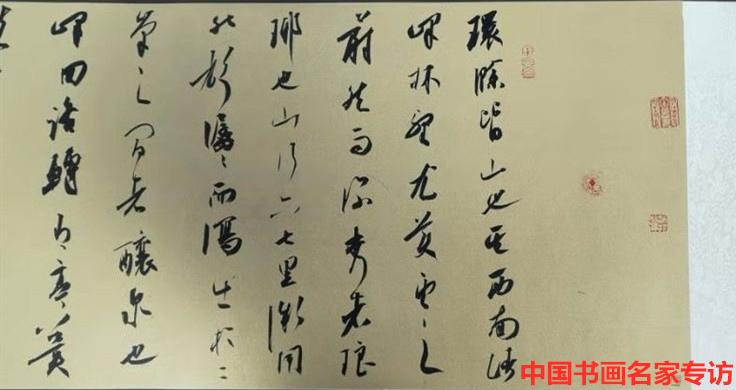 環滁皆山也其西南諸
峰林壑尤美望之
蔚然而深秀者琅
琊也山行六七里漸聞
水聲潺々而瀉出於
峯之間者釀泉也
峰回路轉有亭翼
中国书画名家专访